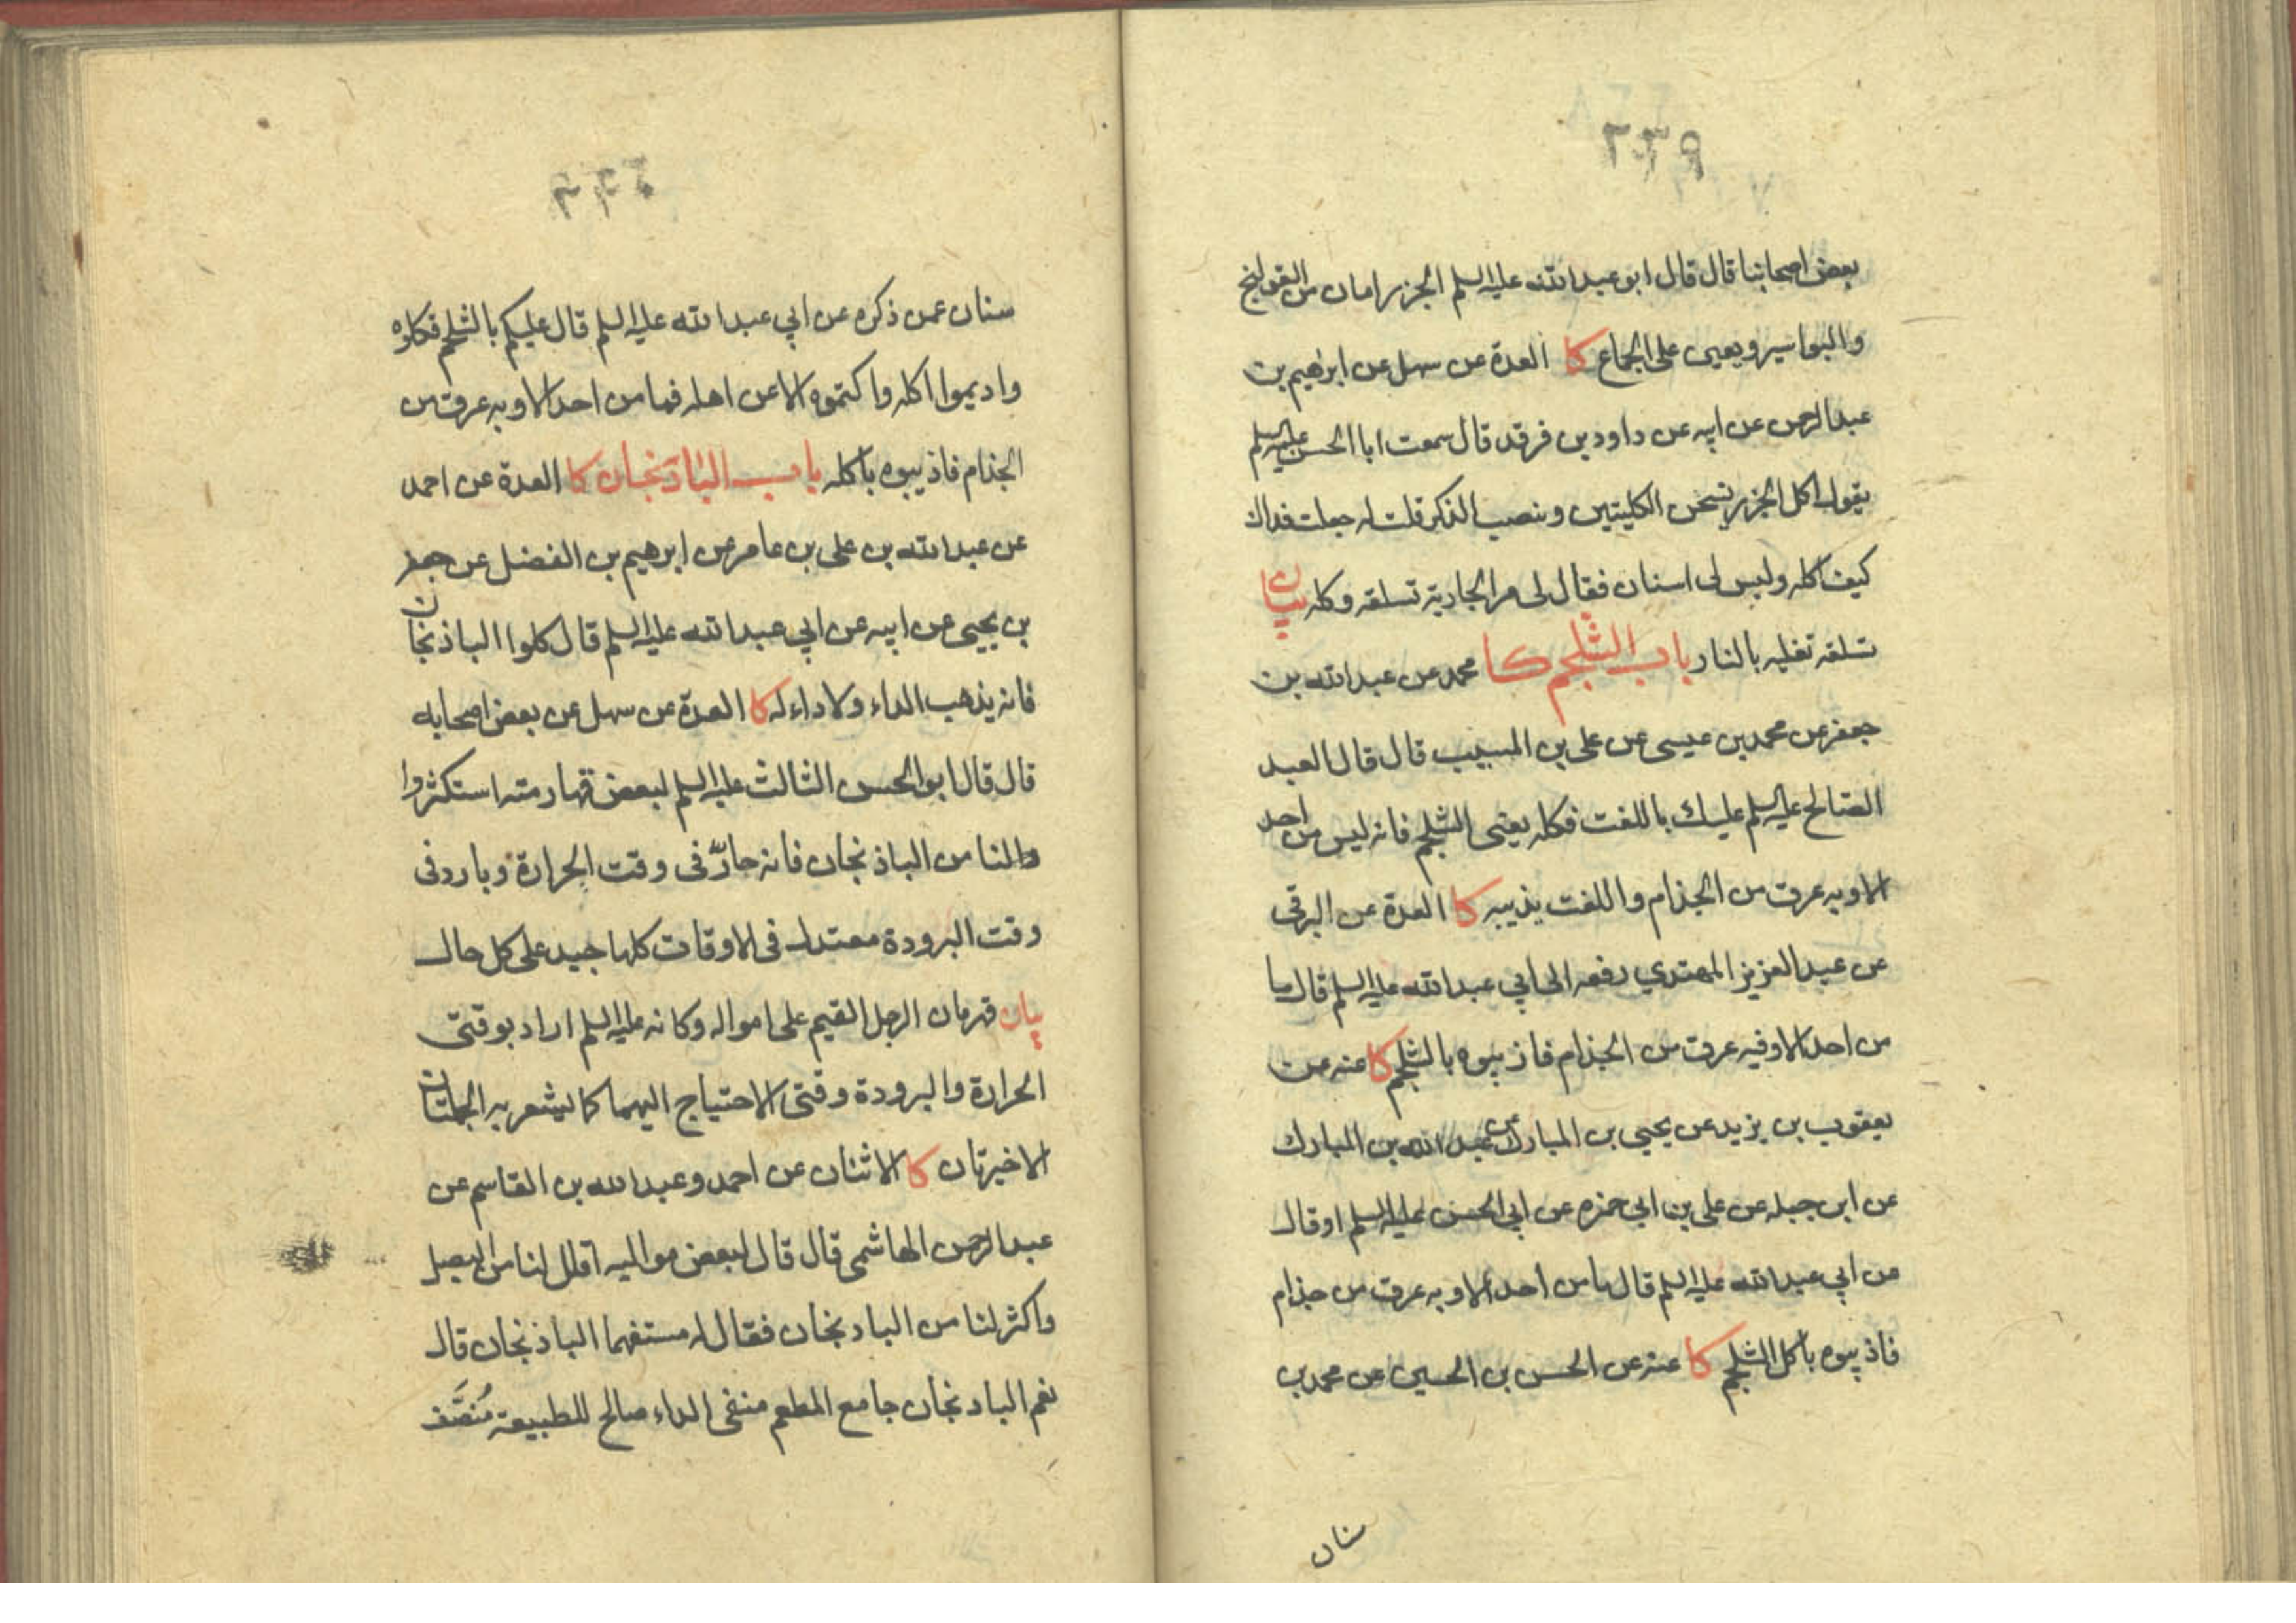 بعض اصحابنا قال قال ابو عبد الله عليه السلم الجزر امان من القولنج
والبواسير ويعين على الجماع كا العدة عن سهل عن ابرهيم بن
عبد الرحمن عن ابيه عن داود بن فرقد قال سمعت ابا الحسن عليه السلم
يقول اكل الجزر يسخن الكليتين وينصب الذكر قلت له جعلت فداك
كيف اكله وليس لى اسنان فقال لى مر الجارية تسلقه وكله بيان
تسلقه تغليه بالنار باب الشلجم كا محمد عن عبد الله بن
جعفر عن محمد بن عيسى عن على بن المسيب قال قال العبد
الصالح عليه السلم عليك باللفت فكله يعنى الشلجم فانه ليس من احد
الا وبه عرق من الجذام واللفت يذيبه كا العدة عن البرقى
عن عبد العزيز المهتدي رفعه الى ابي عبد الله عليه السلم قال ما
من احد الا وفيه عرق من الجذام فاذيبوه بالشلجم كا عنه عن
يعقوب بن يزيد عن يحيى بن المبارك عن عبد الله بن المبارك
عن ابن جبله عن على بن ابي حمزه عن ابي الحسن عليه السلم او قال
عن ابي عبد الله عليه السلم قال ما من احد الا وبه عرق من جذام
فاذيبوه باكل الشلجم كا عنه عن الحسن بن الحسين عن محمد بن
سنان
سنان عمن ذكره عن ابي عبد الله عليه السلم قال عليكم بالشلجم فكلوه
واديموا اكله واكتموه الا عن اهله فما من احد الا وبه عرق من
الجذام فاذيبوه باكله باب الباذنجان كا العدة عن احمد
عن عبد الله بن على بن عامر عن ابرهيم بن الفضل عن جعفر
بن يحيى عن ابيه عن ابي عبد الله عليه السلم قال كلوا الباذنجان
فانه يذهب الداء ولا داء له كا العدة عن سهل عن بعض اصحابه
قال قال ابو الحسن الثالث عليه السلم لبعض قهارمته استكثروا
والنا من الباذنجان فانه حارّ فى وقت الحرارة وبارد فى
وقت البرودة معتدل فى الاوقات كلها جيد على كل حال
بيان قهرمان الرجل القيم على امواله وكانه عليه السلم اراد بوقتى
الحرارة والبرودة وقتى الاحتياج اليهما كما يشعر به الجملتان
الاخيرتان كا الاثنان عن احمد وعبد الله بن القاسم عن
عبد الرحمن الهاشمى قال قال لبعض مواليه اقلل لنا من البصل
واكثر لنا من البادنجان فقال له مستفهما الباذنجان قال
نعم البادنجان جامع المطعم منفى الداء صالح للطبيعة مُنصَّف